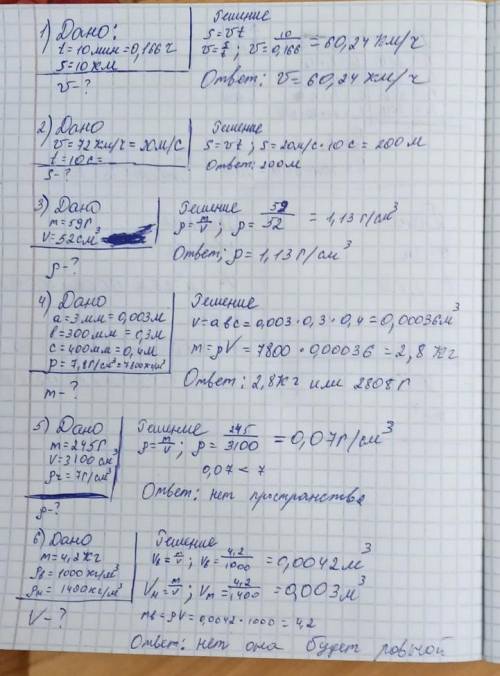 1) Дано:
t=10мин=0,166ч
S=10км
v-?
Решение
S=vt
v=S/t; v=10/0,166=60,24 км/ч
Ответ: v=60,24 км/ч
2) Дано
v=72км/ч=20м/с
t=10с=
S-?
Решение
S=vt; S=20м/с·10с=200м
Ответ: 200м
3) Дано
m=59г
V=52см³
ρ-?
Решение
ρ=m/V; ρ=59/52=1,13г/см³
Ответ; ρ=1,13г/см³
4) Дано
a=3мм=0,003м
b=300мм=0,3м
c=400мм=0,4м
ρ=7,8г/см³=7800кг/м³
m-?
Решение
V=abc=0,003·0,3·0,4=0,00036м³
m=ρV=7800·0,00036=2,8кг
Ответ: 2,8кг или 2808г
5) Дано
m=245г
V=3100см³
ρг=7г/см³
ρ-?
Решение
ρ=m/V; ρ=245/3100=0,07г/см³
0,07<7
Ответ: нет пространства
6) Дано
m=4,2кг
ρв=1000кг/м³
ρм=1400кг/м³
V-?
Решение
Vв=m/V; Vв=4,2/1000=0,0042м³
Vм=m/V; Vм=4,2/1400=0,003м³
mв=ρV=0,0042·1000=4,2
Ответ: нет она будет ровной